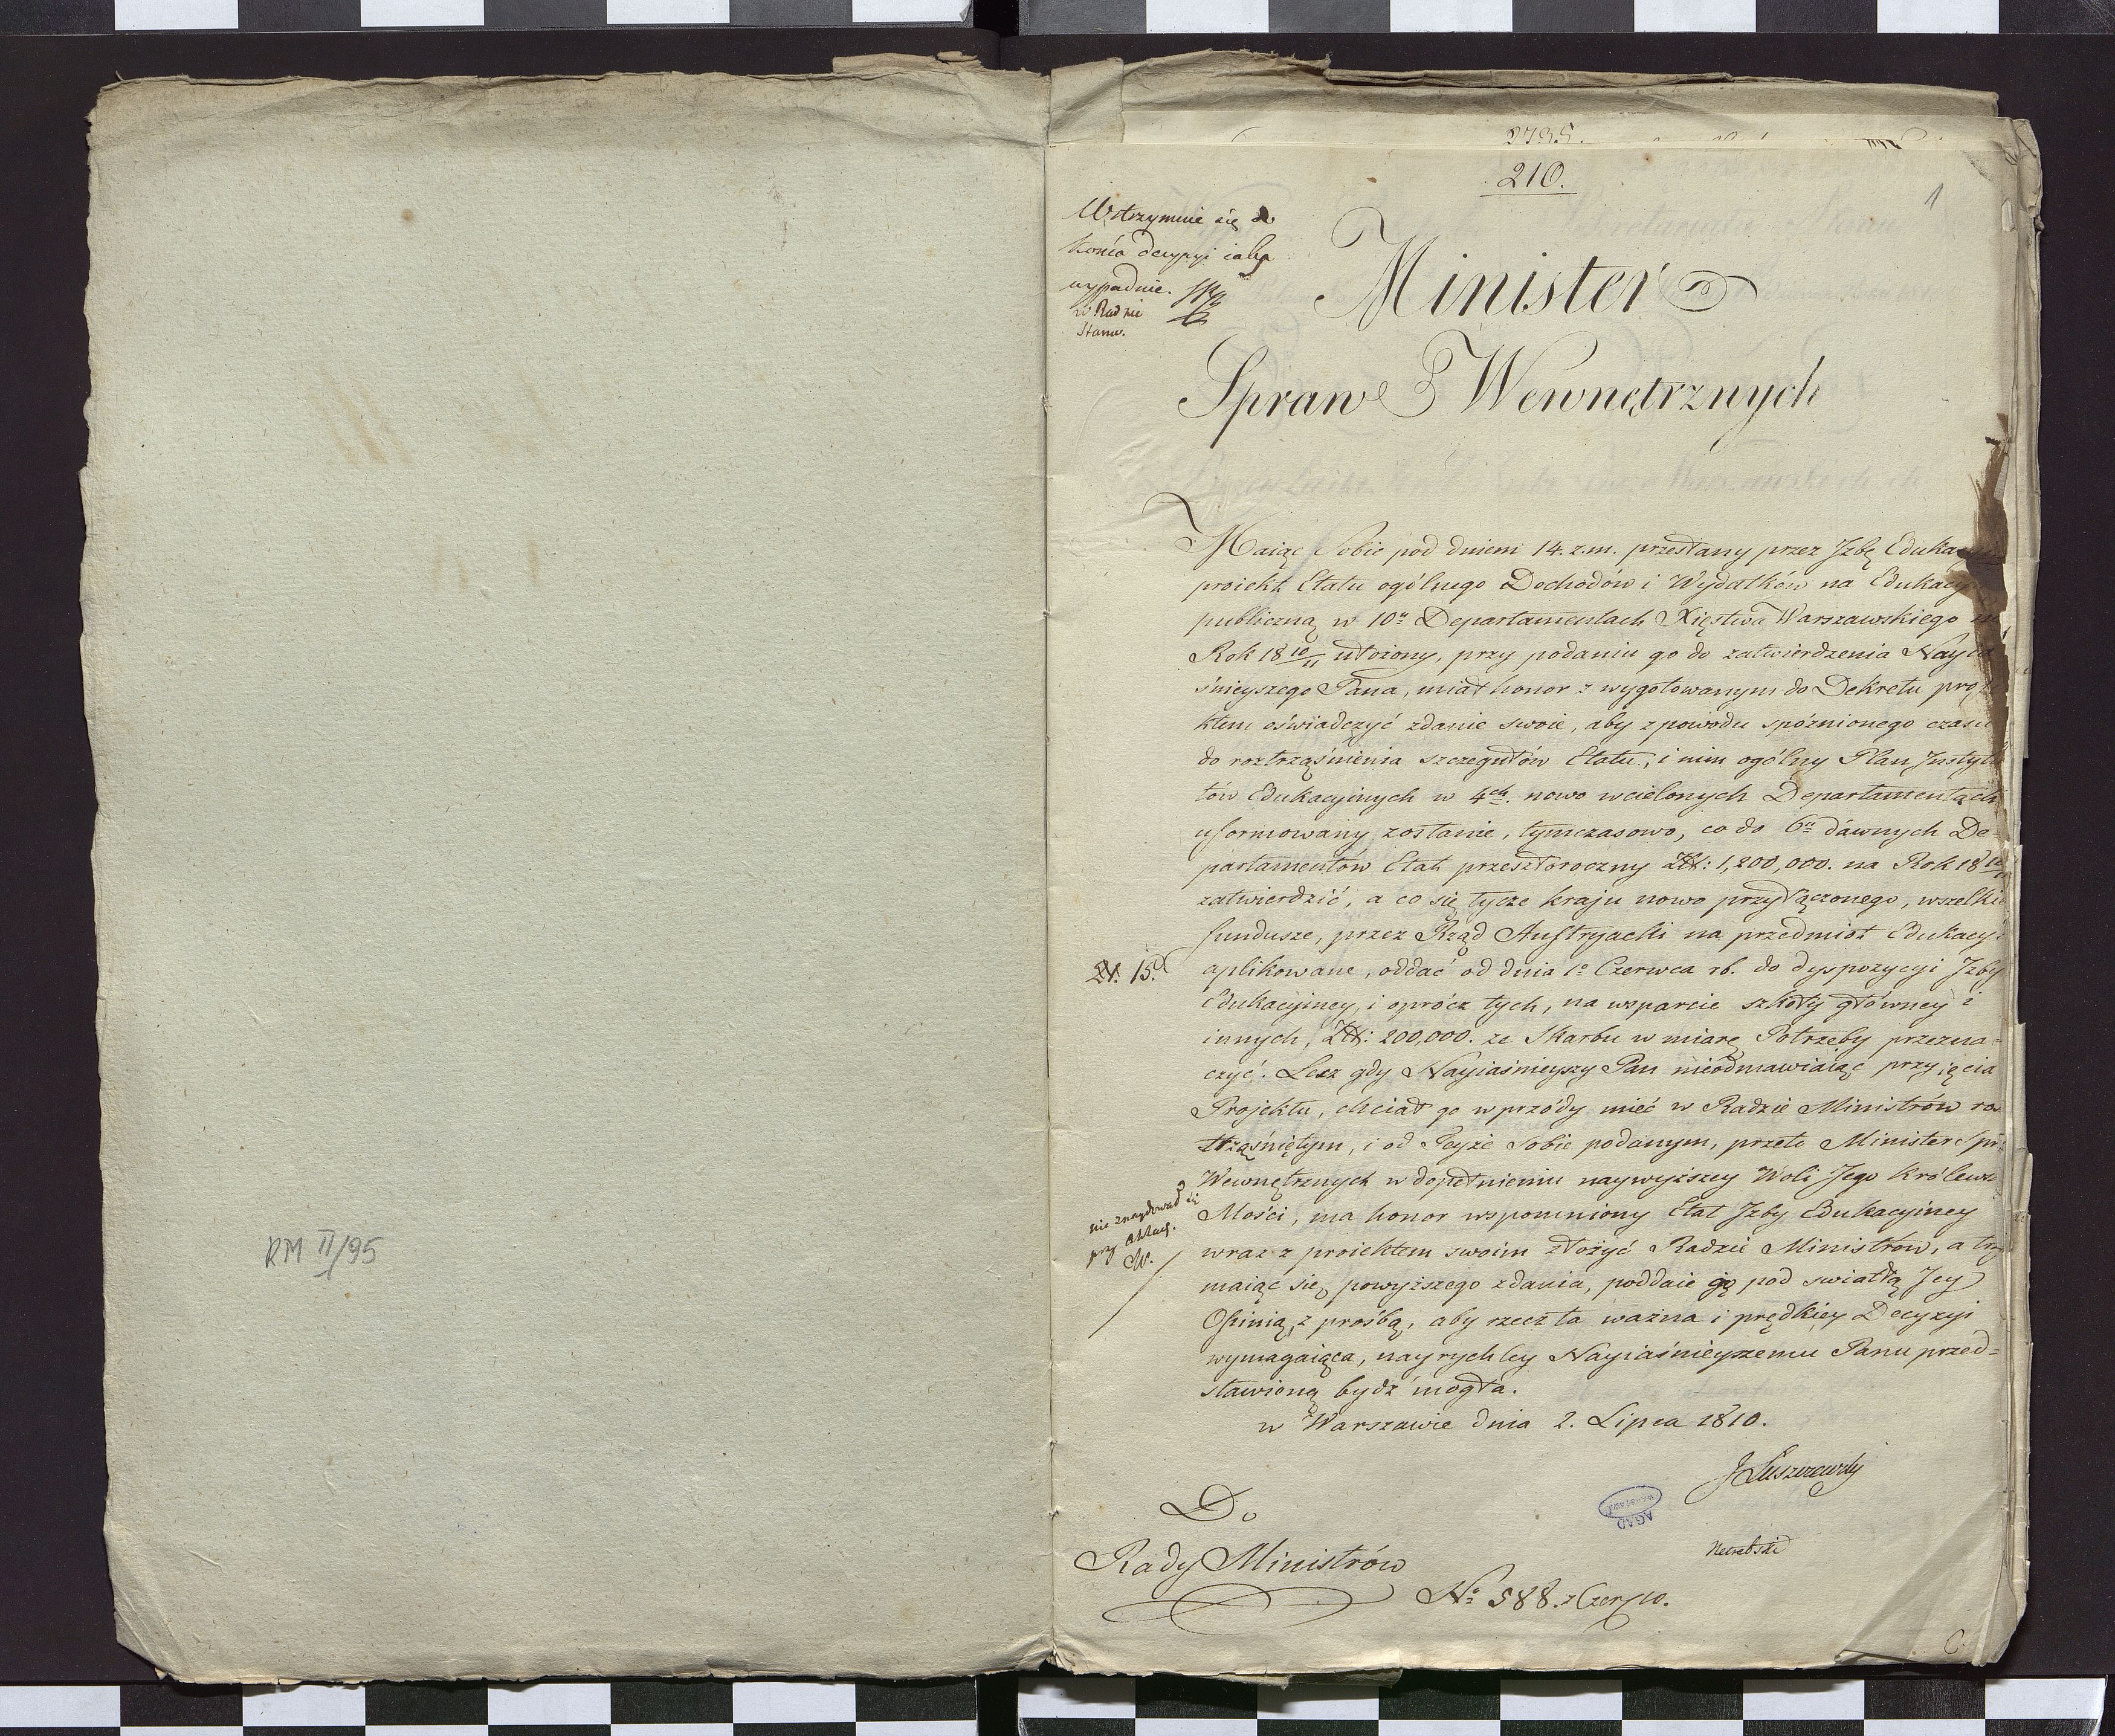 RM II/95
2735.
210.
1
Wstrzymuie się do
końca decyzyi iaka
wypadnie.
w Radzie
Stanu.
Minister
Spraw Wewnętrznych
Maiąc Sobie pod dniem 14. z.m. przesłany przez Jzbę Edukac
proiekt Etatu ogólnego Dochodów i Wydatków na Edukacy
publiczną w 10u Departamentach Xięstwa Warszawskiego na
Rok 18 10/11 ułożony, przy podaniu go do zatwierdzenia Nayia
śnieyszego Pana, miał honor z wygotowanym do Dekretu proje
ktem oświadczyć zdanie swoie, aby z powodu spóźnionego czasu
do roztrząśnienia szczegułów Etatu, i nim ogólny Plan Jnstytu
tów Edukacyinych w 4ch. nowo wcielonych Departamentach
uformowany zostanie, tymczasowo, co do 6u dawnych De=
partamentów Etat przeszłoroczny Zł: 1,200,000. na Rok 18 10/11
zatwierdzić, a co się tycze kraju nowo przyłączonego, wszelkie
fundusze, przez Rząd Austryacki na przedmiot Edukacyi
15. aplikowane, oddać od dnia 1o Czerwca rb. do dyspozycyi Jzby
Edukacyiney, i oprócz tych, na wsparcie szkoły główney i
innych, Zł: 200,000. ze Skarbu w miarę Potrzeby przezna=
czyć. Lecz gdy Nayiaśnieyszy Pan nieodmawiaiąc przyięcia
Projektu, chciał go wprzódy mieć w Radzie Ministrów roz
trząśniętym, i od Teyże Sobie podanym, przeto Minister Spr:
Wewnętrznych w dopełnieniu naywyższey Woli Jego Królews
nie znaydował się
przy aktach.
W.
Mości, ma honor wspomniony Etat Jzby Edukacyiney
wraz z proiektem swoim złożyć Radzie Ministrów, a trzy
maiąc się powyższego zdania, poddaie go pod swiatłą Jey
Opinią, z prośbą, aby rzecz ta ważna i prędkiey Decyzyi
wymagaiąca, nayrychley Nayiaśnieyszemu Panu przed=
stawioną bydź mogła.
w Warszawie dnia 2. Lipca 1810.
J Łuszczewski
Do
AGAD
WARSZAWA
Rady Ministrów
No 588. z Czer/10.